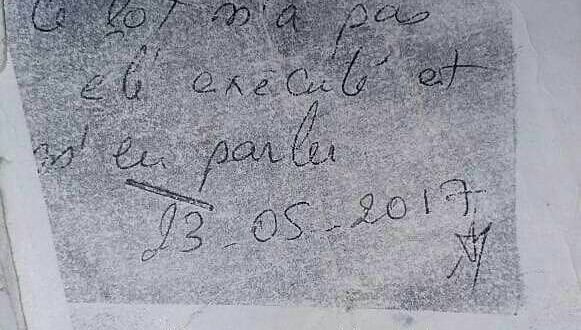 Ce lot n'a pas
été exécuté et
m'en parler
23-05-2017